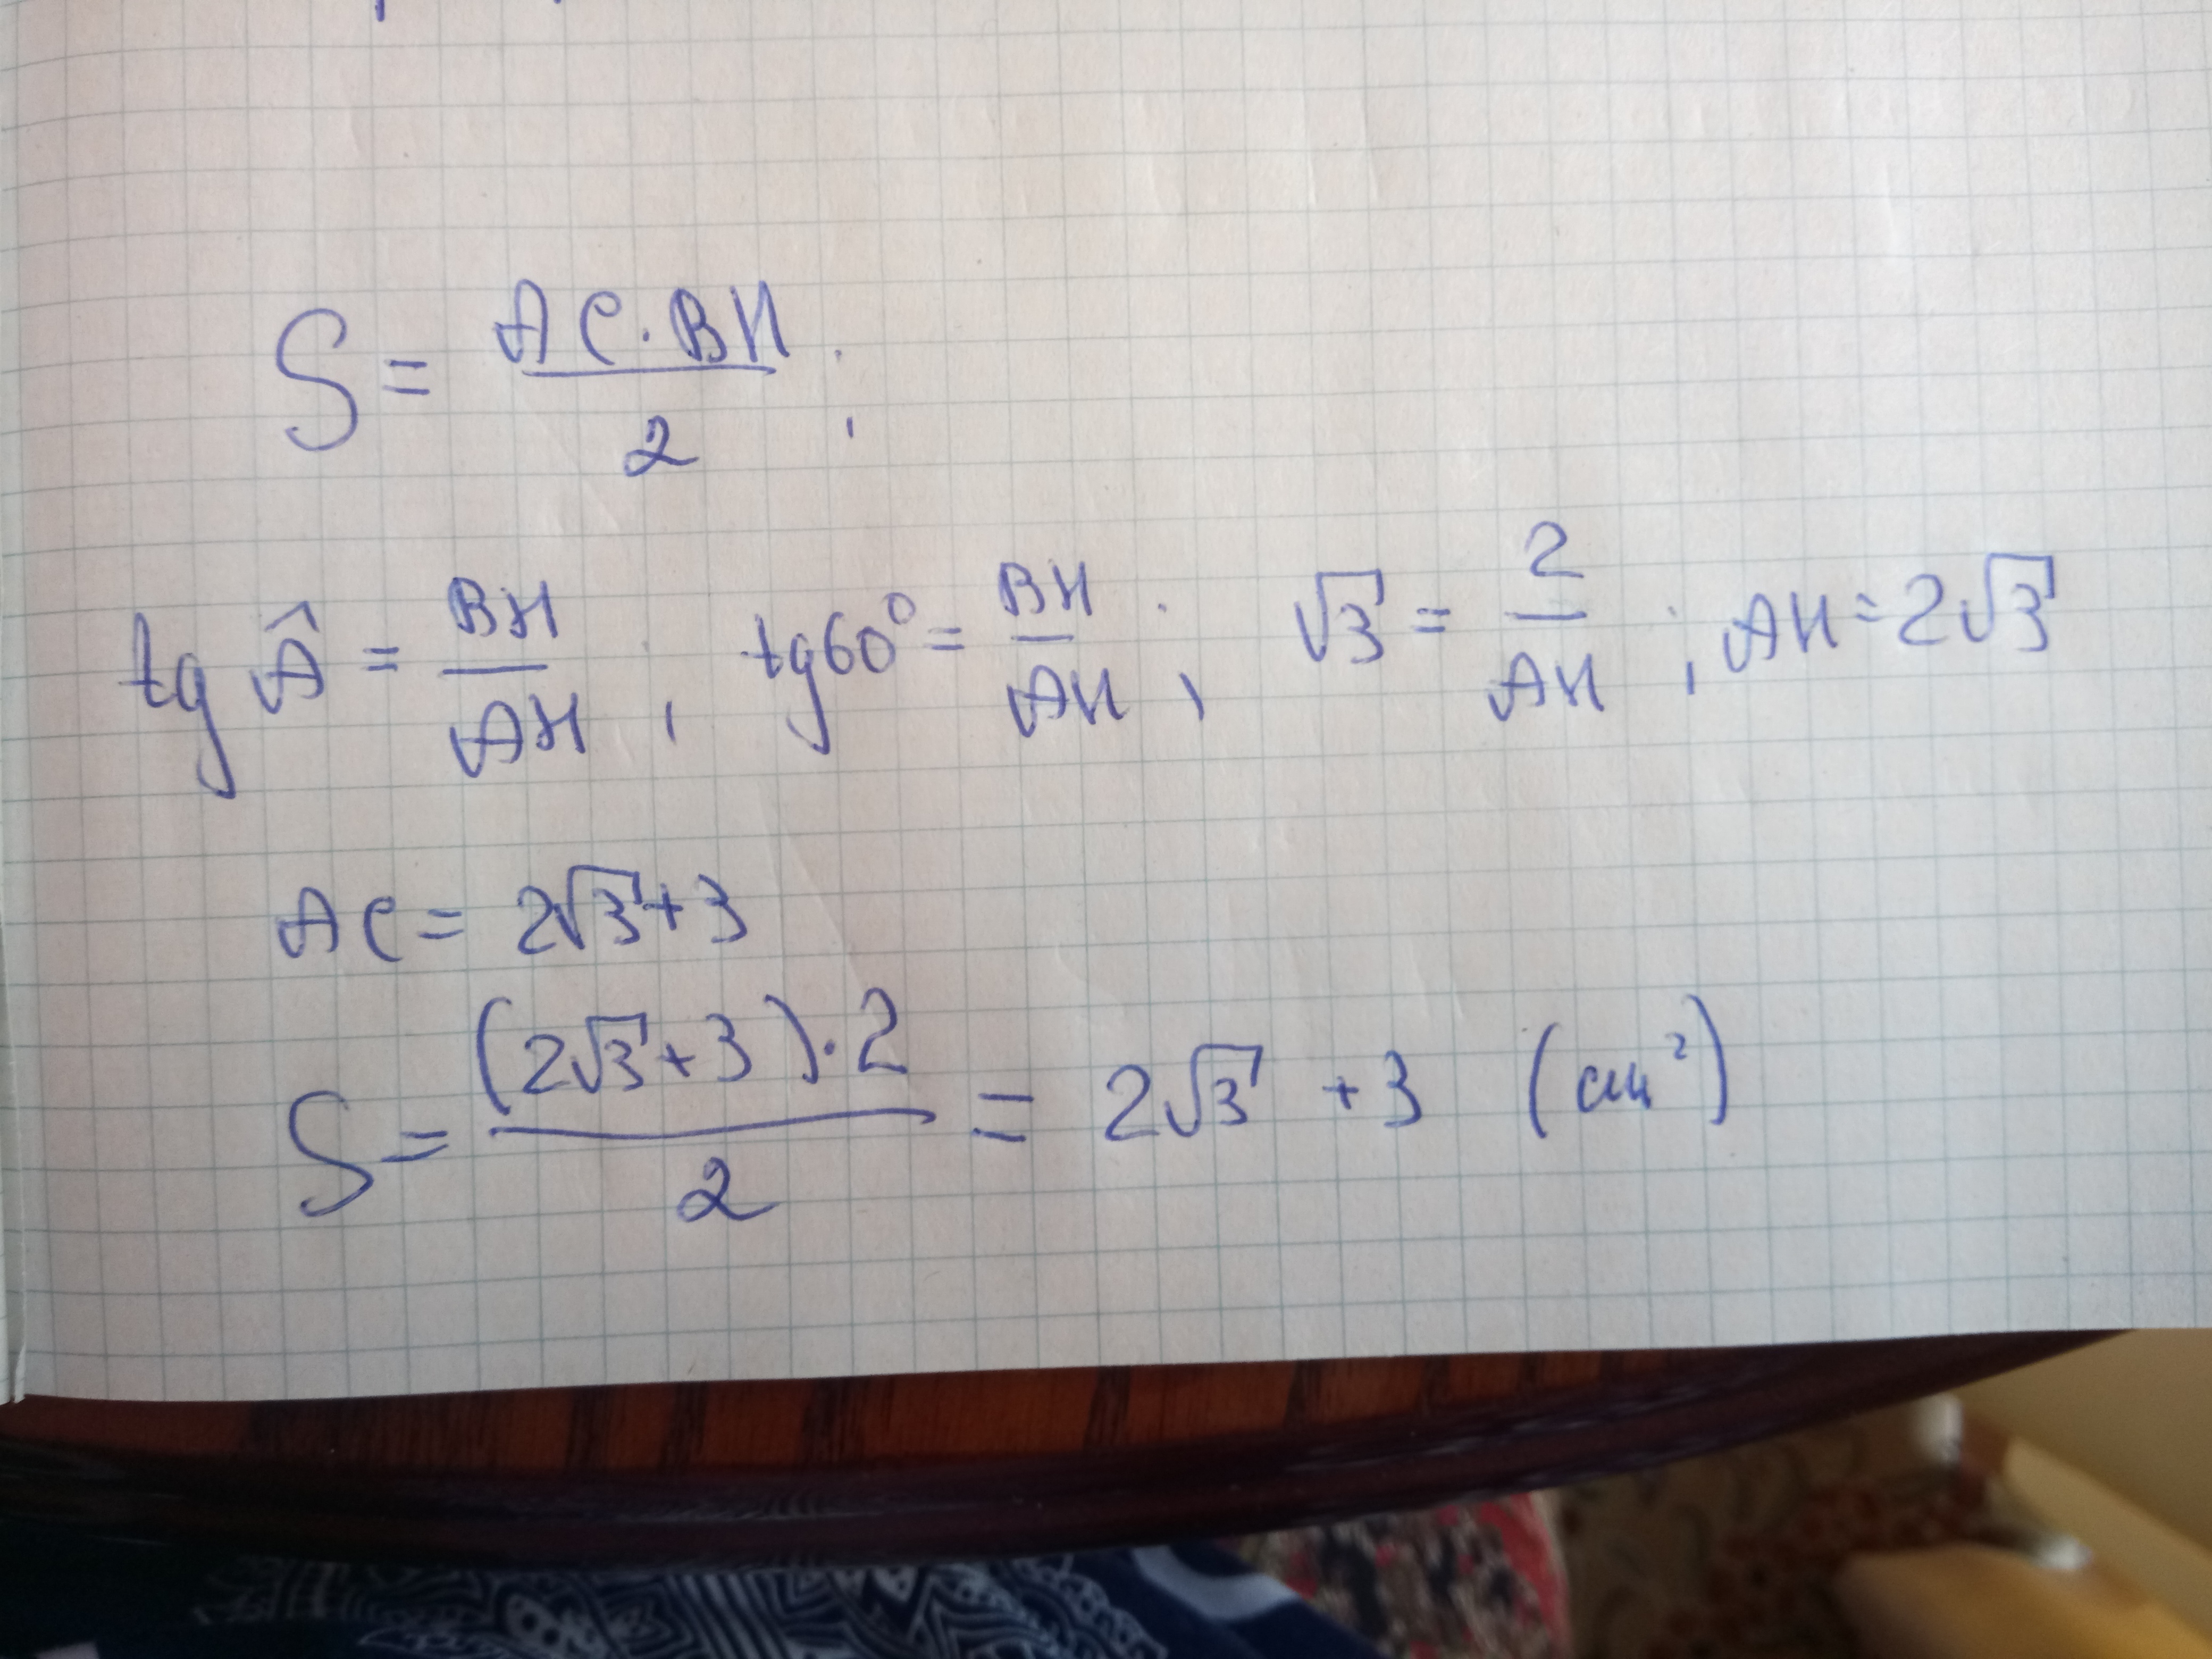 S = AC · BH / 2 ;
tg Â = BH / AH ; tg 60° = BH / AH ; √3 = 2 / AH ; AH = 2√3
AC = 2√3 + 3
S = (2√3 + 3) · 2 / 2 = 2√3 + 3 (см²)